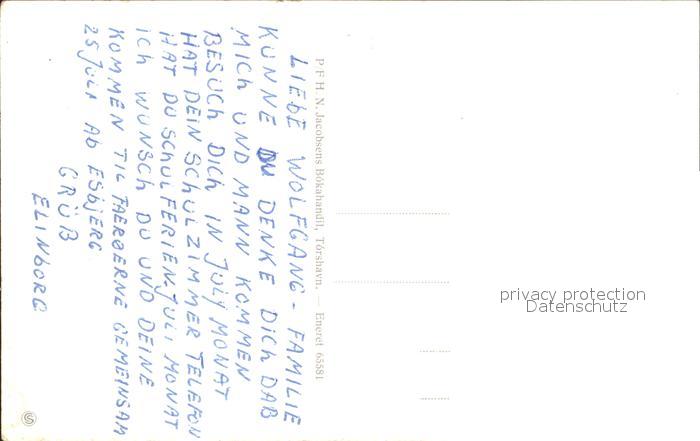 LIEBE WOLFGANG - FAMILIE
KUNNE DU DENKE DICH DAB
MICH UND MANN KOMMEN
BESUCH DICH IN JULY MONAT
HAT DEIN SCHULZIMMER TELEFON
HAT DU SCHULFERIEN. JULI MONAT
ICH WUNSCH DU UND DEINE
KOMMEN TIL FAERØERNE GEMEINSAM
25 JULI AB ESBJERG
GRÜB
ELINBORG
P/F H. N. Jacobsens Bókahandil, Tórshavn. — Eneret 65581
privacy protection
Datenschutz
S